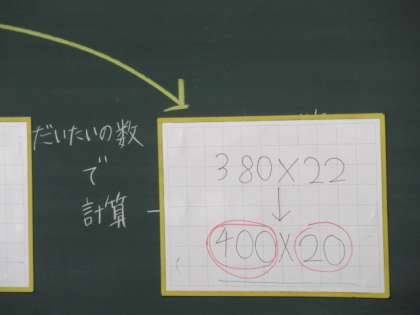 だいたいの数
で
計算
380×22
↓
400×20